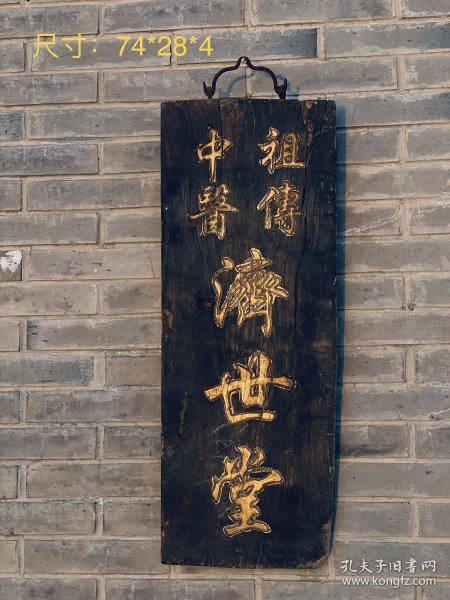 尺寸：74*28*4
祖傳
中醫
濟世堂
孔夫子旧书网
www.kongfz.com